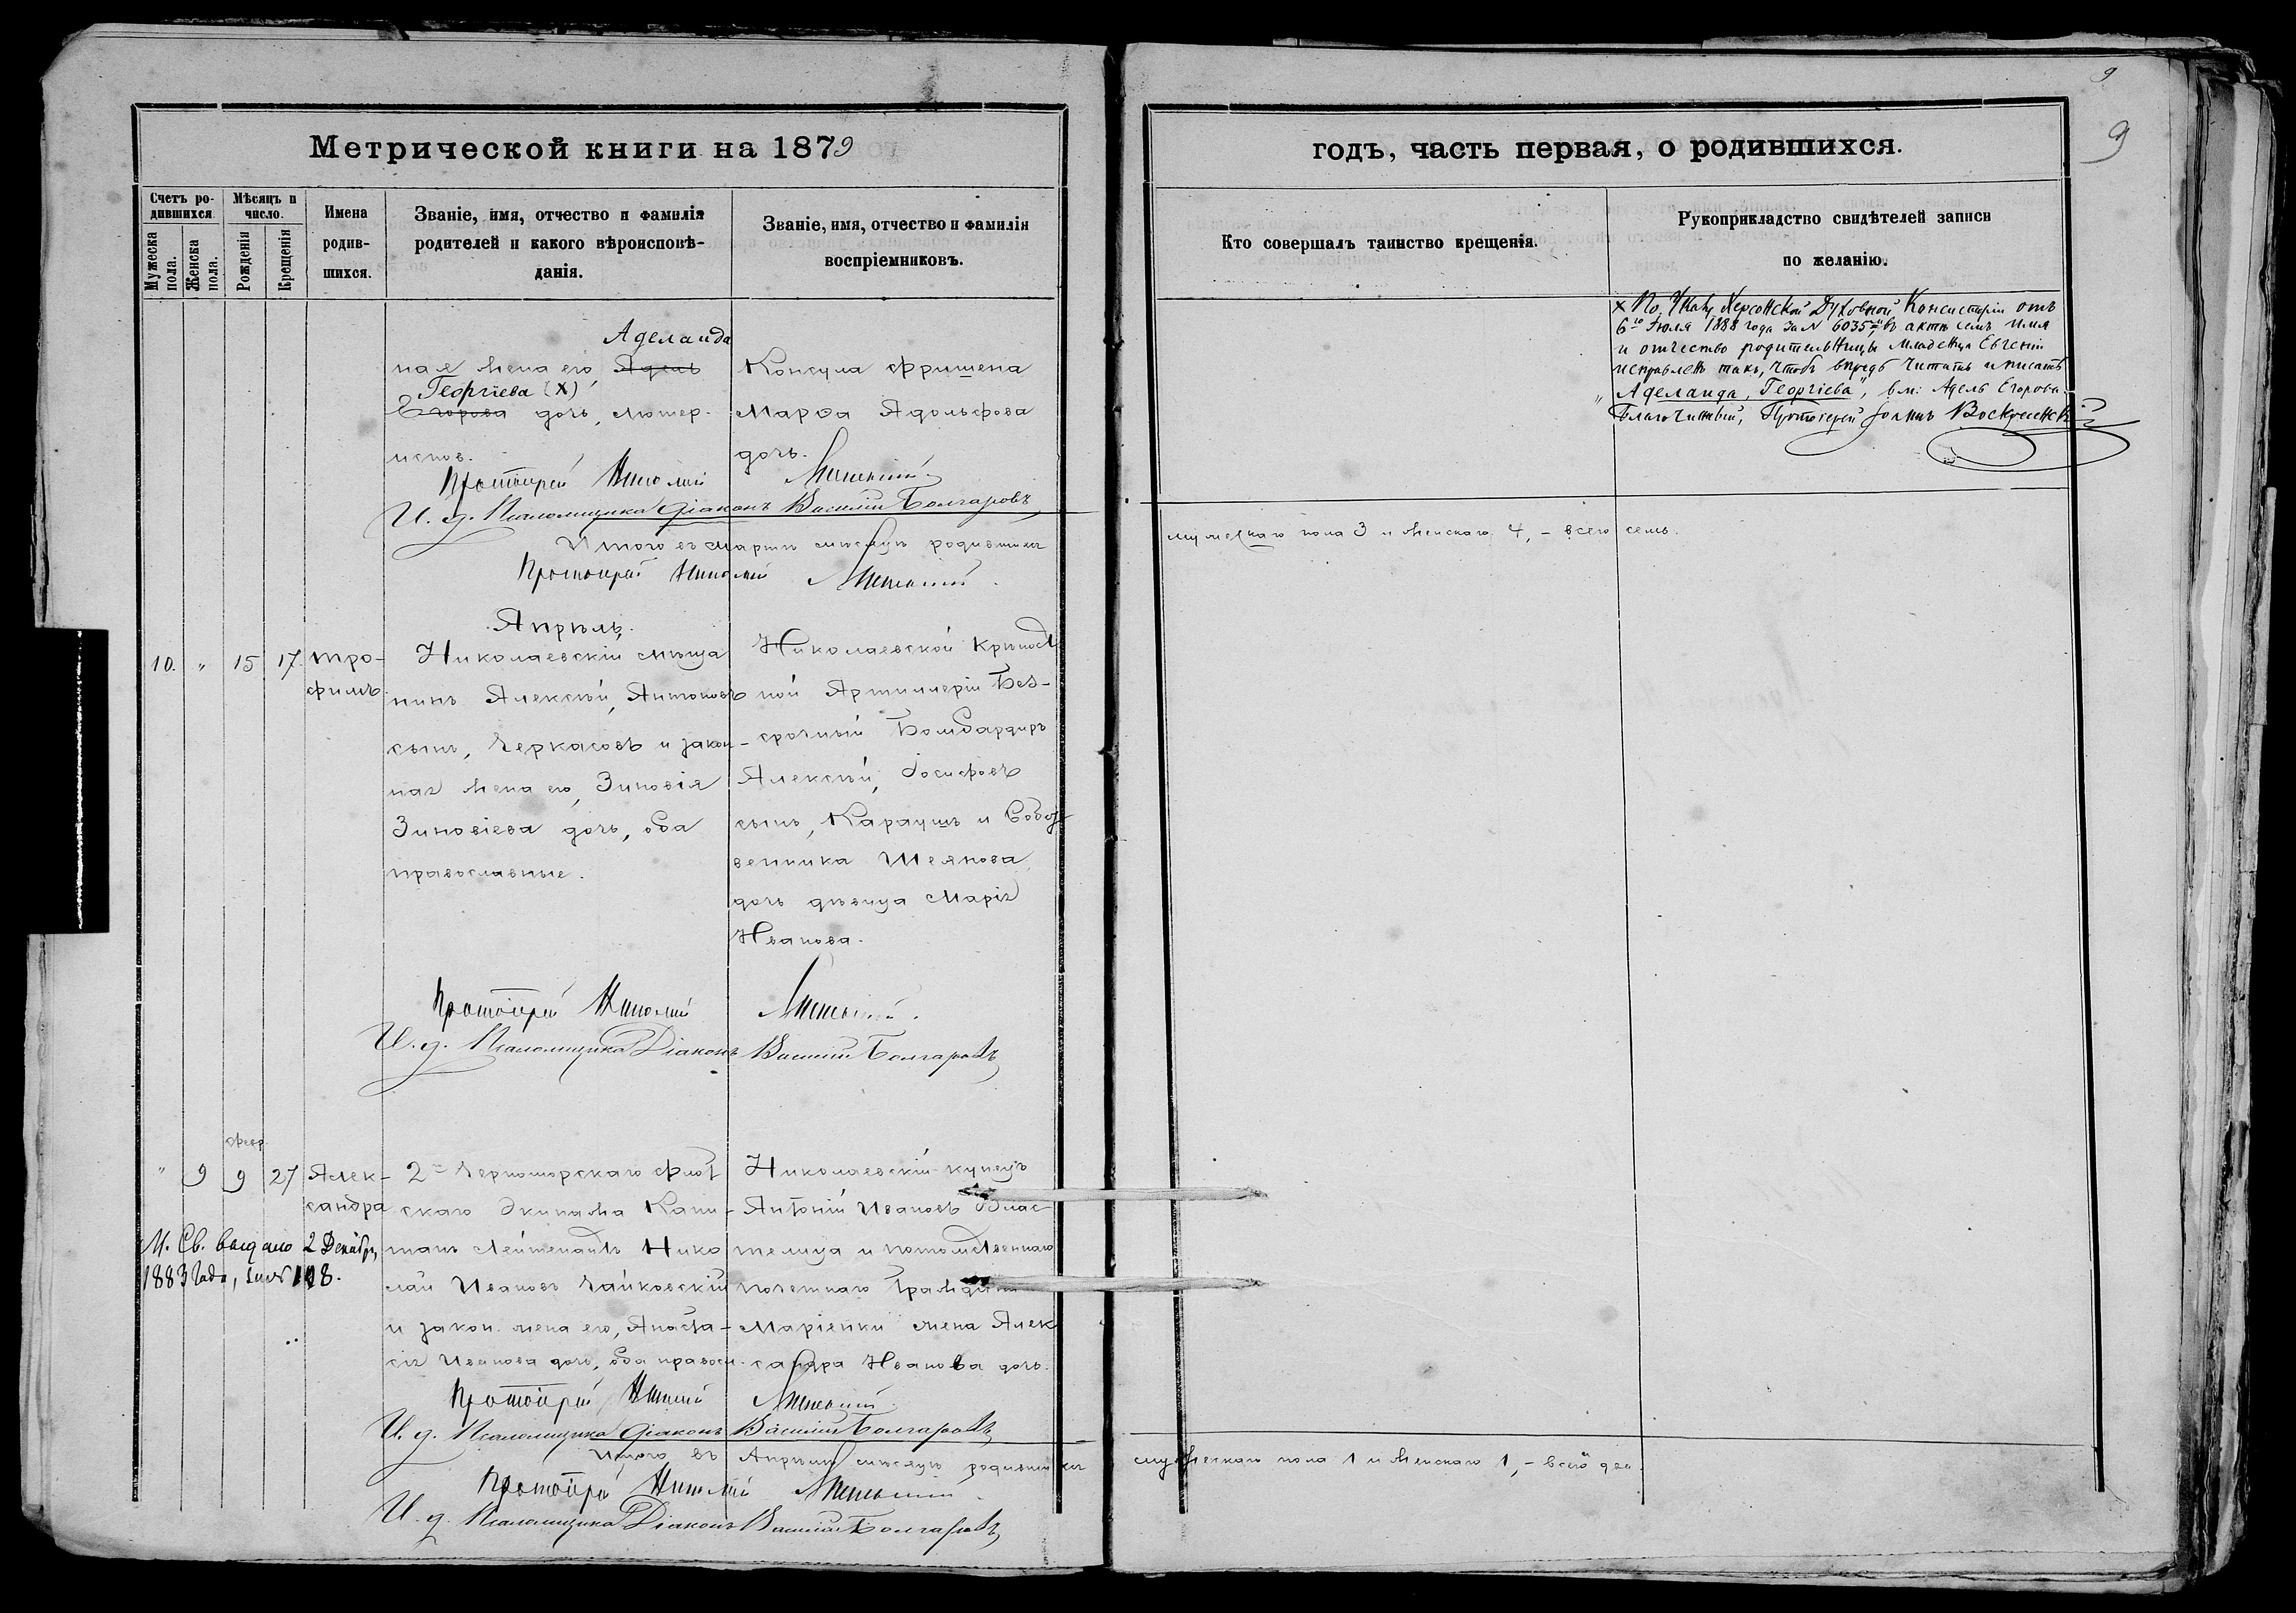 Метрической книги на 1879
Счетъ ро-
дившихся.
Мѣсяцъ и
число.
Мужеска
пола.
Женска
пола.
Рожденія
Крещенія
Имена
родив-
шихся.
Званіе, имя, отчество и фамилія
родителей и какого вѣроисповѣ-
данія.
Званіе, имя, отчество и фамилія
воспріемниковъ.
Аделаида
ная жена его Адель
Георгіева (X)
Егорова дочь, лютер.
испов.
Консула Фришена
Марѳа Адольфова
дочь.
Протоіерей Николай
И. д. Псаломщика Діаконъ Василій Болгаровъ
Итого въ Мартѣ мѣсяцѣ родившихся
Протоіерей Николай
Апрѣль.
10. " 15 17. Тро-
фимъ
Николаевскій мѣща
нинъ Алексѣй, Антоновъ
сынъ, Черкасовъ и закон-
ная жена его, Зиновія
Зиновіева дочь, оба
православные.
Николаевской Крѣпост
ной Артиллеріи Без-
срочный Бомбардиръ
Алексѣй, Іосифовъ
сынъ, Караушъ и
венника
дочь дѣвица Марія
Иванова.
Протоіерей Николай
И. д. Псаломщика Діаконъ Василій Болгаровъ
Февр.
" 9 9 27 Алек-
сандра
М. Св. выдано 2 Декабр,
1883 года, за №
2го Черноморскаго флот
скаго Экипажа Капи-
танъ Лейтенантъ Нико
лай Ивановъ Чайковскій
и закон. жена его, Анаста-
сія Иванова дочь, оба правосл.
Николаевскій купецъ
Антоній Ивановъ Влас-
телица и потомственнаго
почетнаго Гражданина
Маріенки жена Алек
сандра Иванова дочь.
Протоіерей Николай
И. д. Псаломщика Діаконъ Василій Болгаровъ
Итого въ Апрѣлѣ мѣсяцѣ родившихся
Протоіерей Николай
И. д. Псаломщика Діаконъ Василій Болгаровъ
9
9
годъ, часть первая, о родившихся.
Кто совершалъ таинство крещенія.
Рукоприкладство свидѣтелей записи
по желанію.
X По Указу Херсонской Духовной Консисторіи отъ
6го Іюля 1888 года за N 6035, въ актѣ семъ имя
и отчество родительницы младенца Евгеніи
исправлен такъ, чтобъ впредь читать и писать
"Аделаида, Георгіева", вм. Адель Егорова.
Благочинный, Протоіерей Іоаннъ Воскресенскій
мужескаго пола 3 и женскаго 4, - всего семь.
мужескаго пола 1 и женскаго 1, - всего два.